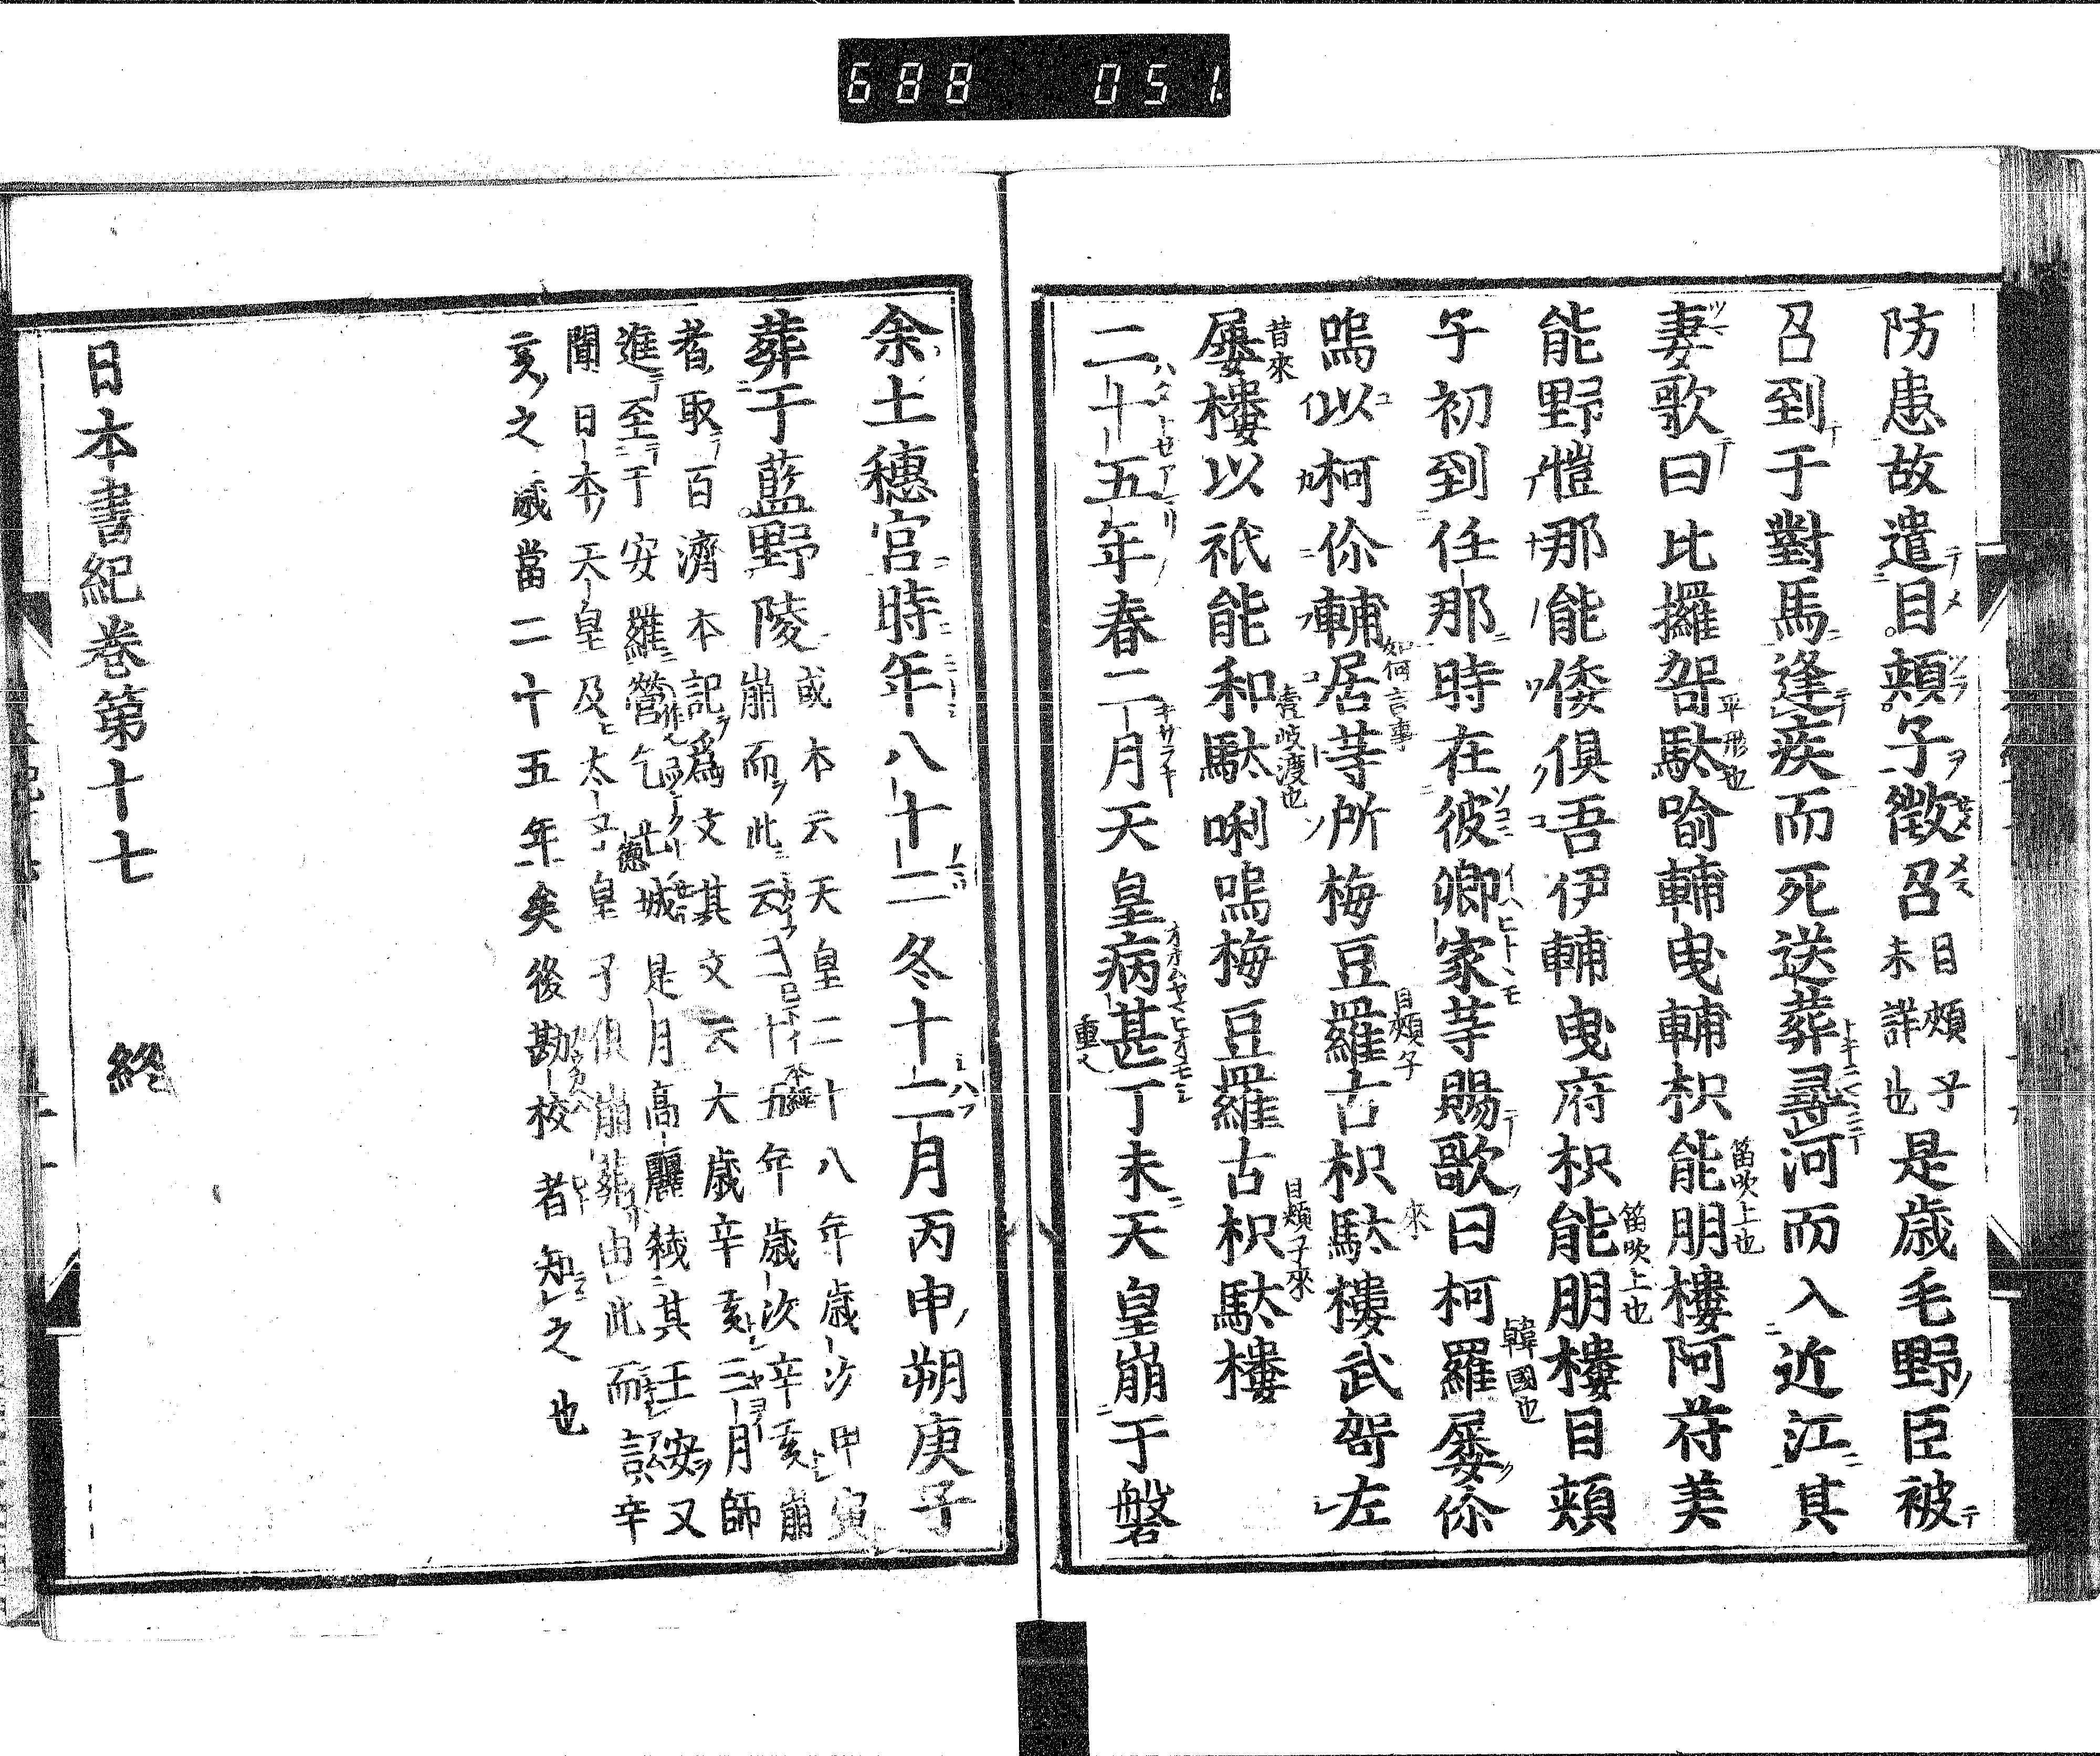 688 051
防患故遣目頰子徵召
目頰子
未詳也
是歳毛野臣被
召到于對馬逢疾而死送葬尋河而入近江其
妻歌曰比攞哿駄喻輔曳輔枳能朋樓阿苻美
平形也
笛吹上也
能野愷那能倭俱吾伊輔曳府枳能朋樓目頰
笛吹上也
子初到任那時在彼卿家等賜歌曰柯羅屡儞
韓國也
嗚以柯儞輔居等所梅豆羅古枳駄樓武哿左
如何言事
目頰子
來
屡樓以祇能和駄唎嗚梅豆羅古枳駄樓
昔來
壹岐渡也
目頰子來
二十五年春二月天皇病甚丁未天皇崩于磐
ハタトセアマリ
キサラキ
重
余土穗宮時年八十二冬十二月丙申朔庚子
葬于藍野陵
或本云天皇二十八年歳次甲寅
崩而此云二十五年歳次辛亥崩
者取百濟本記爲文其文云大歳辛亥三月師
進至于安羅營乞乇城是月高麗弑其王安又
德
聞日本天皇及太子皇子俱崩薨由此而言辛
亥之歳當二十五年矣後勘校者知之也
日本書紀卷第十七 終